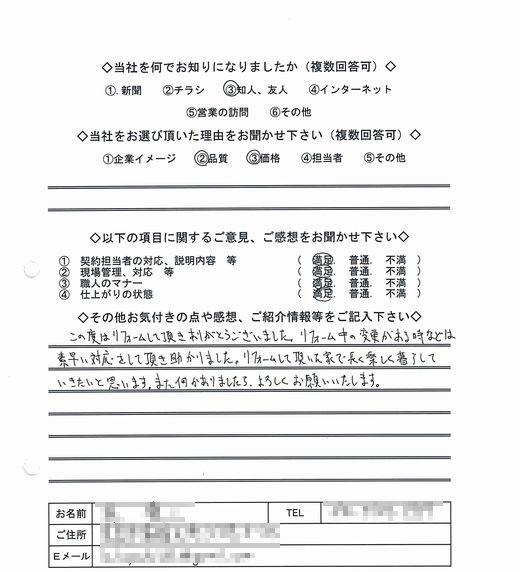 ◇当社を何でお知りになりましたか（複数回答可）◇
①. 新聞　②チラシ　③知人、友人　④インターネット
⑤営業の訪問　⑥その他
◇当社をお選び頂いた理由をお聞かせ下さい（複数回答可）◇
①企業イメージ　②品質　③価格　④担当者　⑤その他
◇以下の項目に関するご意見、ご感想をお聞かせ下さい◇
①　契約担当者の対応、説明内容　等　（　満足.　普通.　不満　）
②　現場管理、対応　等　（　満足.　普通.　不満　）
③　職人のマナー　（　満足.　普通.　不満　）
④　仕上がりの状態　（　満足.　普通.　不満　）
◇その他お気付きの点や感想、ご紹介情報等をご記入下さい◇
この度はリフォームして頂きありがとうございました。リフォーム中の変更がある時などは
素早い対応をして頂き助かりました。リフォームして頂いた家で長く楽しく暮らして
いきたいと思います。また何かありましたら、よろしくお願いいたします。
お名前　TEL
ご住所
Eメール